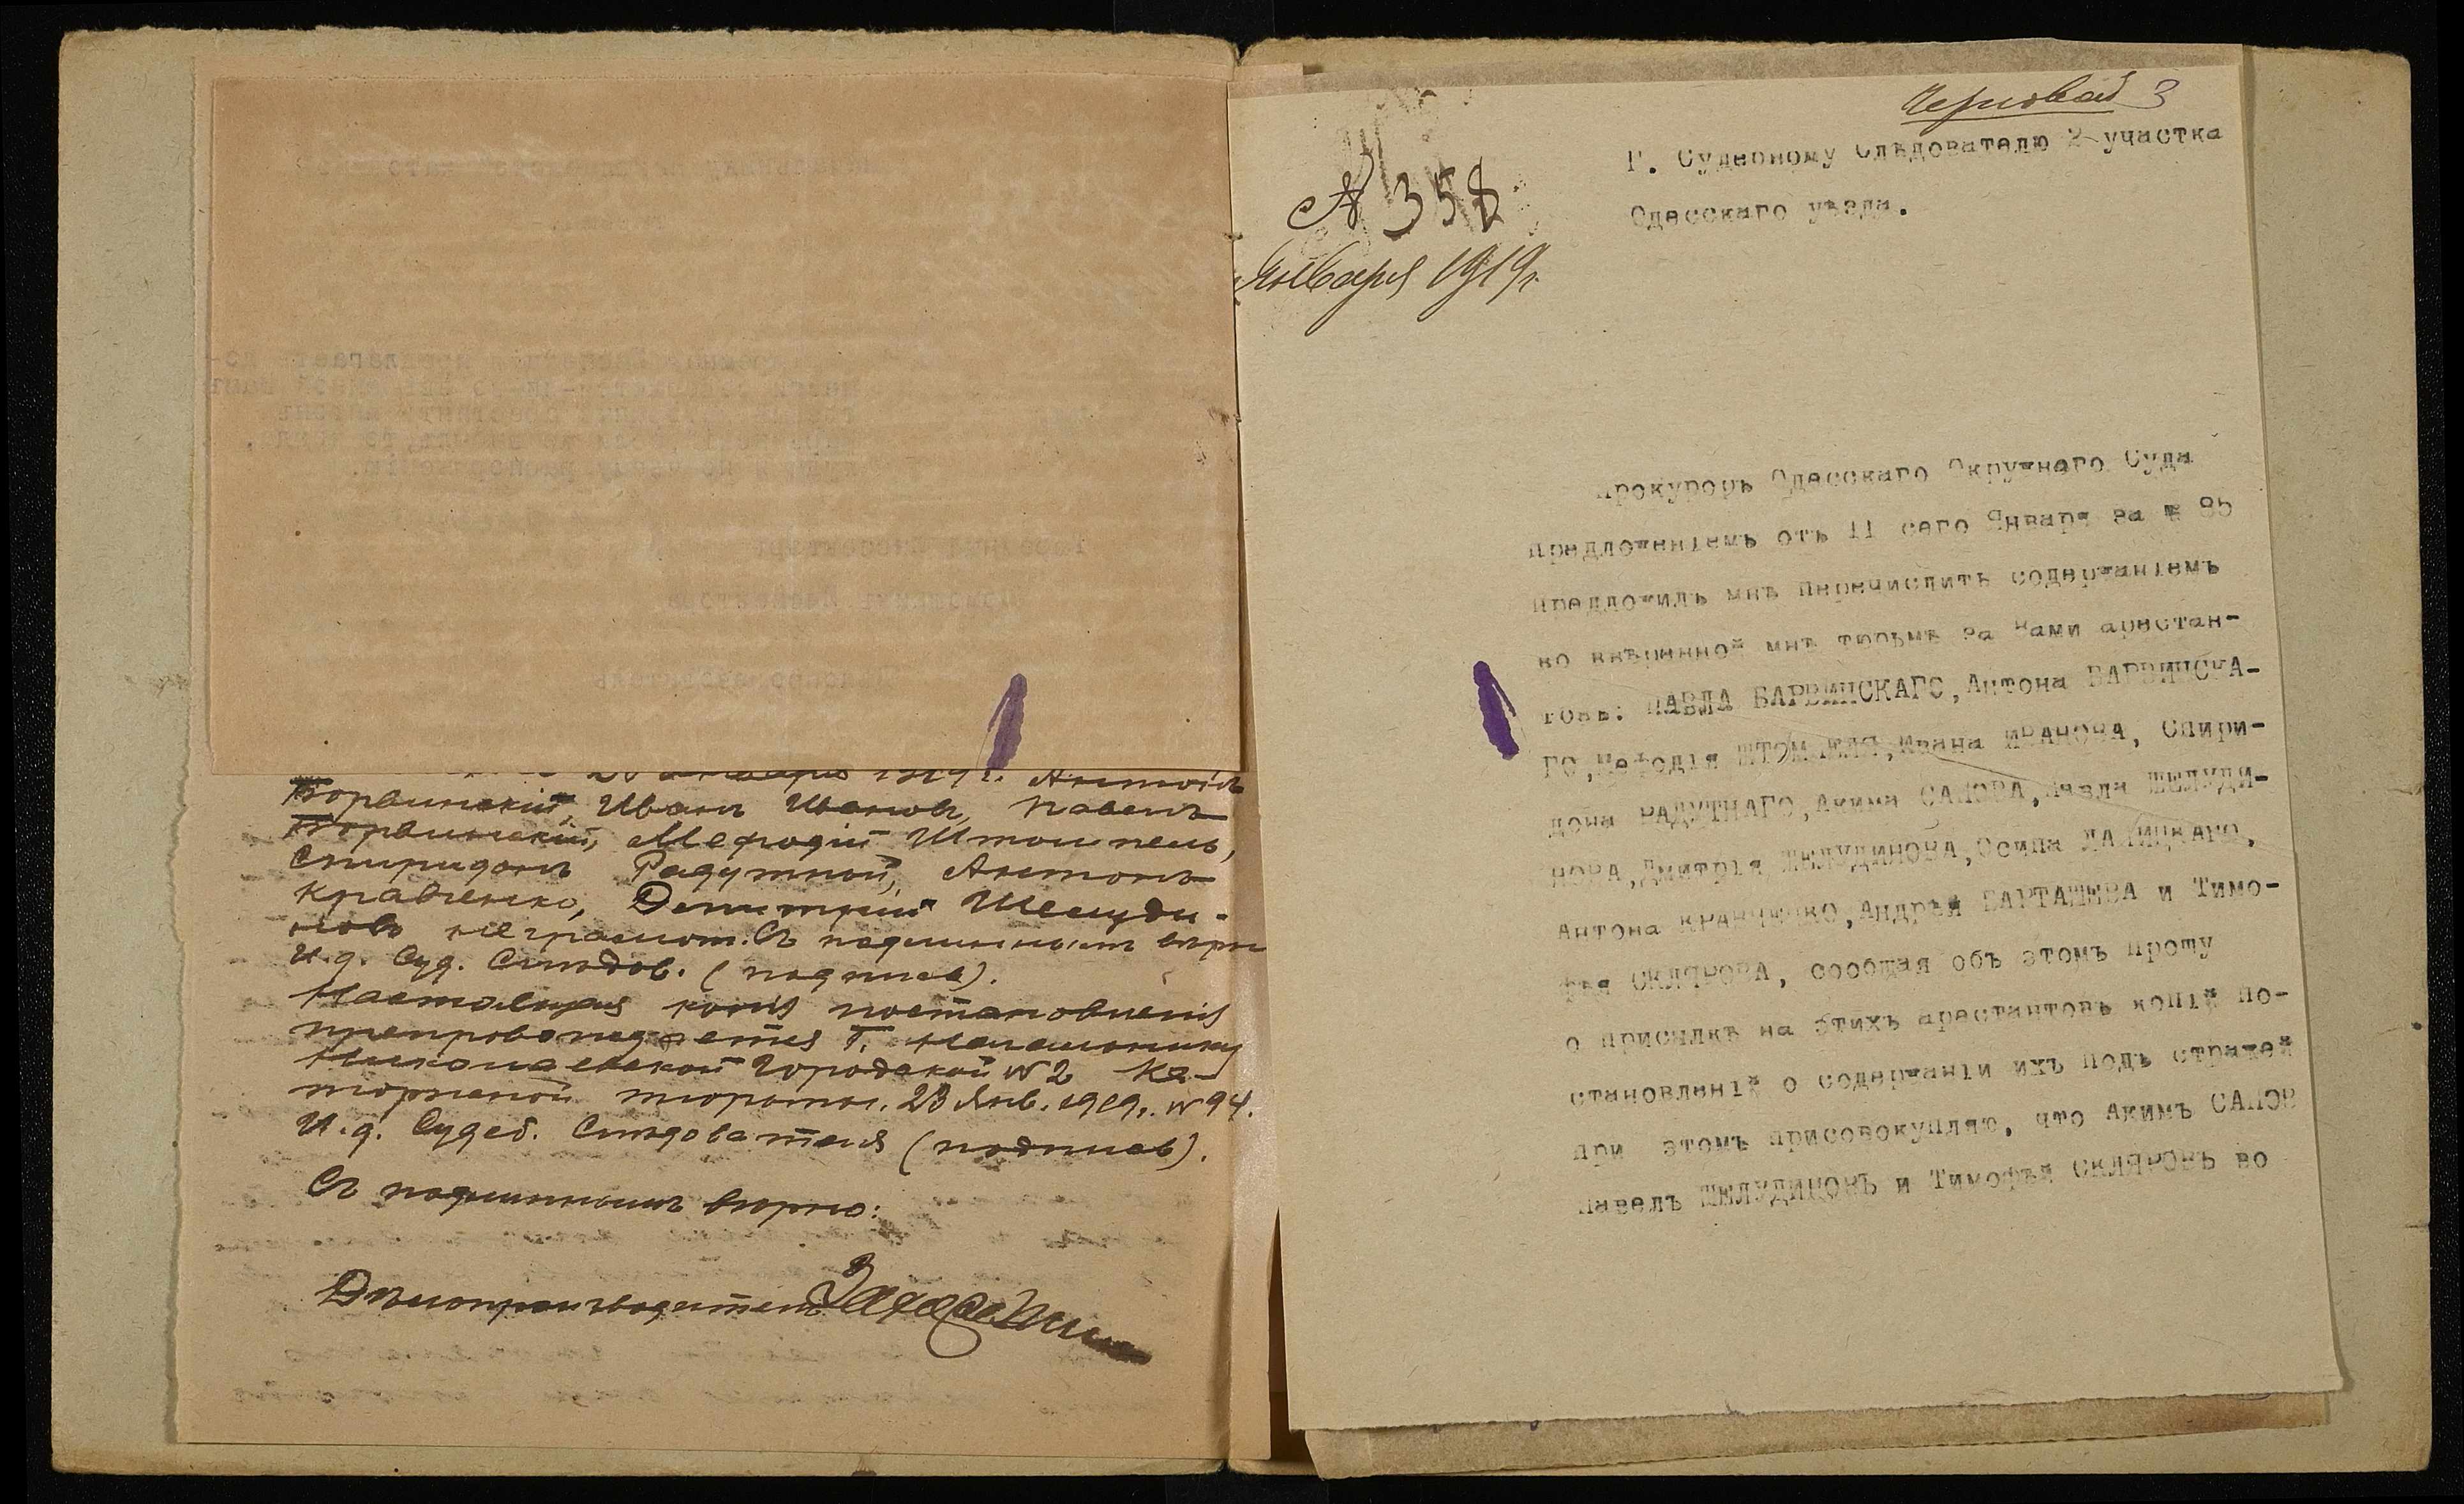 20 января 1919 г. Антонъ
Борвинскій, Иванъ Ивановъ, Павелъ
Борвинскій, Мефодій Штомпель,
Спиридонъ Радутный, Антонъ
Кравченко, Дмитрий Шелуди-
новъ неграмот. Съ подлиннымъ вѣрно
И.д. Суд. Слѣдов. (подпись).
Настоящая копія постановленія
препровождается Г. Начальнику
Николаевской Городской № 2 Ка-
торжной тюрьмы. 23 Янв. 1919г. № 94.
И.д. Судеб. Слѣдователя (подпись).
Съ подлиннымъ вѣрно:
Дѣлопроизводитель
Черновой 3
Г. Судебному Слѣдователю 2 участка
Одесскаго уѣзда.
№ 358
Января 1919г.
Прокуроръ Одесскаго Окружнаго Суда
предложеніемъ отъ 11 сего Января за № 95
предложилъ мнѣ перечислить содержаніемъ
во ввѣренной мнѣ тюрьмѣ за Вами арестан-
товъ: ПАВЛА БАРВИНСКАГО, Антона БАРВИНСКА-
ГО, Мефодія ШТОМПЕЛЯ, Ивана ИВАНОВА, Спири-
дона РАДУТНАГО, Акима САПОВА, Павла ШЕЛУДИ-
НОВА, Дмитрія ШЕЛУДИНОВА, Осипа
Антона КРАВЧЕНКО, Андрея БАРТАШЕВА и Тимо-
фея СКЛЯРОВА, сообщая объ этомъ прошу
о присылкѣ на этихъ арестантовъ копій по-
становленій о содержаніи ихъ подъ стражей
при этомъ присовокупляю, что Акимъ САПОВ
Павелъ ШЕЛУДИНОВЪ и Тимофѣй СКЛЯРОВЪ во